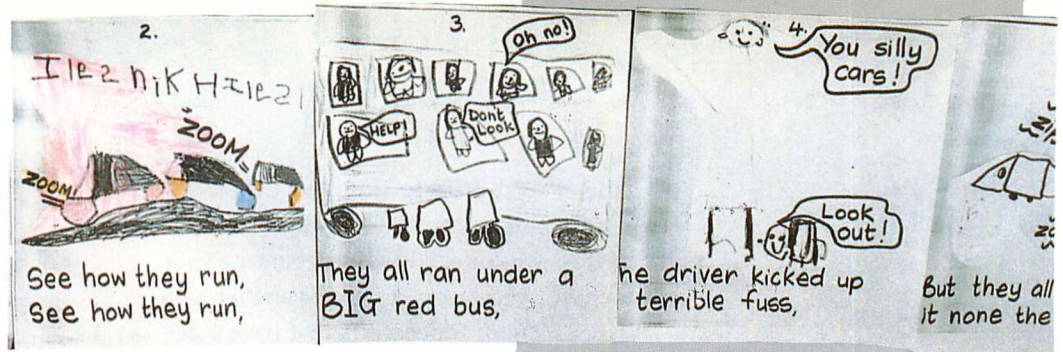 2.
ZOOM
ZOOM
See how they run,
See how they run,
3.
Oh no!
HELP!
Don't
Look
They all ran under a
BIG red bus,
4.
You silly
cars!
Look
out!
he driver kicked up
terrible fuss,
But they all
it none the